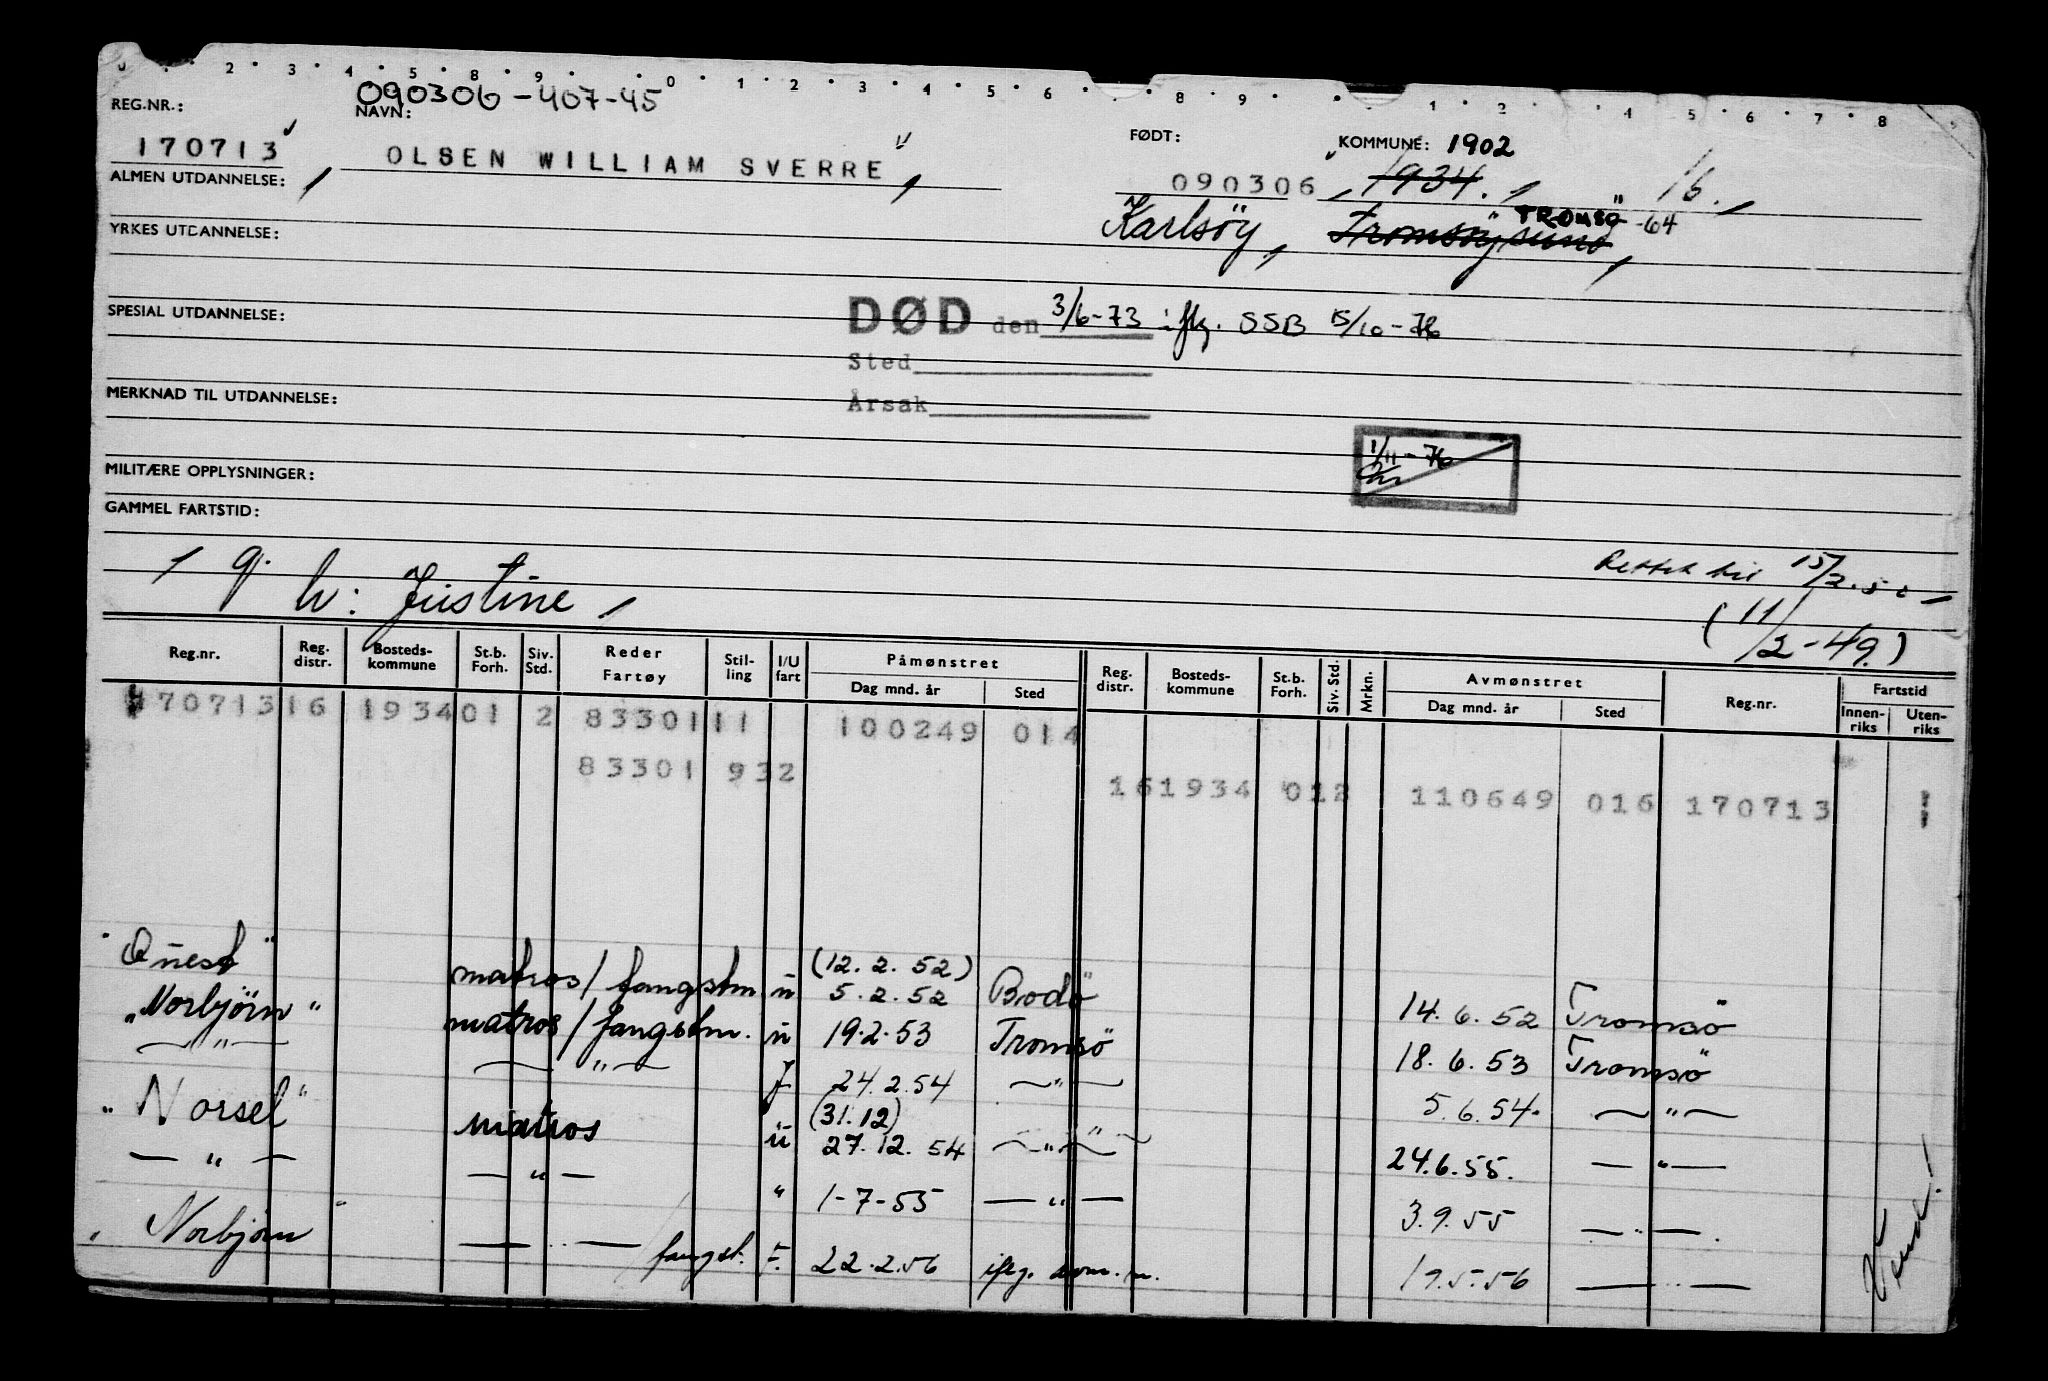 2 3 4 5 8 9 0 1 2 3 4 5 6 8 9 1 2 4 5 6 7 8
REG.NR.: 090306-407-45
NAVN: FØDT: KOMMUNE: 1902
170713 OLSEN WILLIAM SVERRE 090306 1934. 16.
ALMEN UTDANNELSE: Karlsöy, Tromsöysund, TROMSÖ -64
YRKES UTDANNELSE:
SPESIAL UTDANNELSE: DØD den 3/6-73 iflg. SSB 15/10-76
Sted
MERKNAD TIL UTDANNELSE: Årsak
MILITÆRE OPPLYSNINGER: 1/11-76
GAMMEL FARTSTID:
g. Rettet til 15/2.50
h: Justine, (11/2-49)
Reg.nr. Reg. distr. Bosteds-kommune St.b. Forh. Siv. Std. Reder Fartøy Stil-ling I/U fart Påmønstret Dag mnd. år Sted Reg. distr. Bosteds-kommune St.b. Forh. Siv. Std. Mrkn. Avmønstret Dag mnd. år Sted Reg.nr. Fartstid Innen-riks Uten-riks
170713 16 1934 01 2 83301 11 100249 014
83301 932 16 1934 01 2 110649 016 170713
"Quest" matros/fangstm ü (12.2.52) 5.2.52 Bodö 14.6.52 Tromsö
"Norbjörn" matros/fangstm. ü 19.2.53 Tromsö 18.6.53 Tromsö
— " — — " — F 24.2.54 — " — 5.6.54. — " —
"Norsel" matros ü (31.12) 27.12.54 — " — 24.6.55. — " —
— " — — " — " 1-7-55 — " — 3.9.55 — " —.
"Norbjörn" — " — / fangst. F. 22.2.56 iflg. 19.5.56 — " —
Vend!